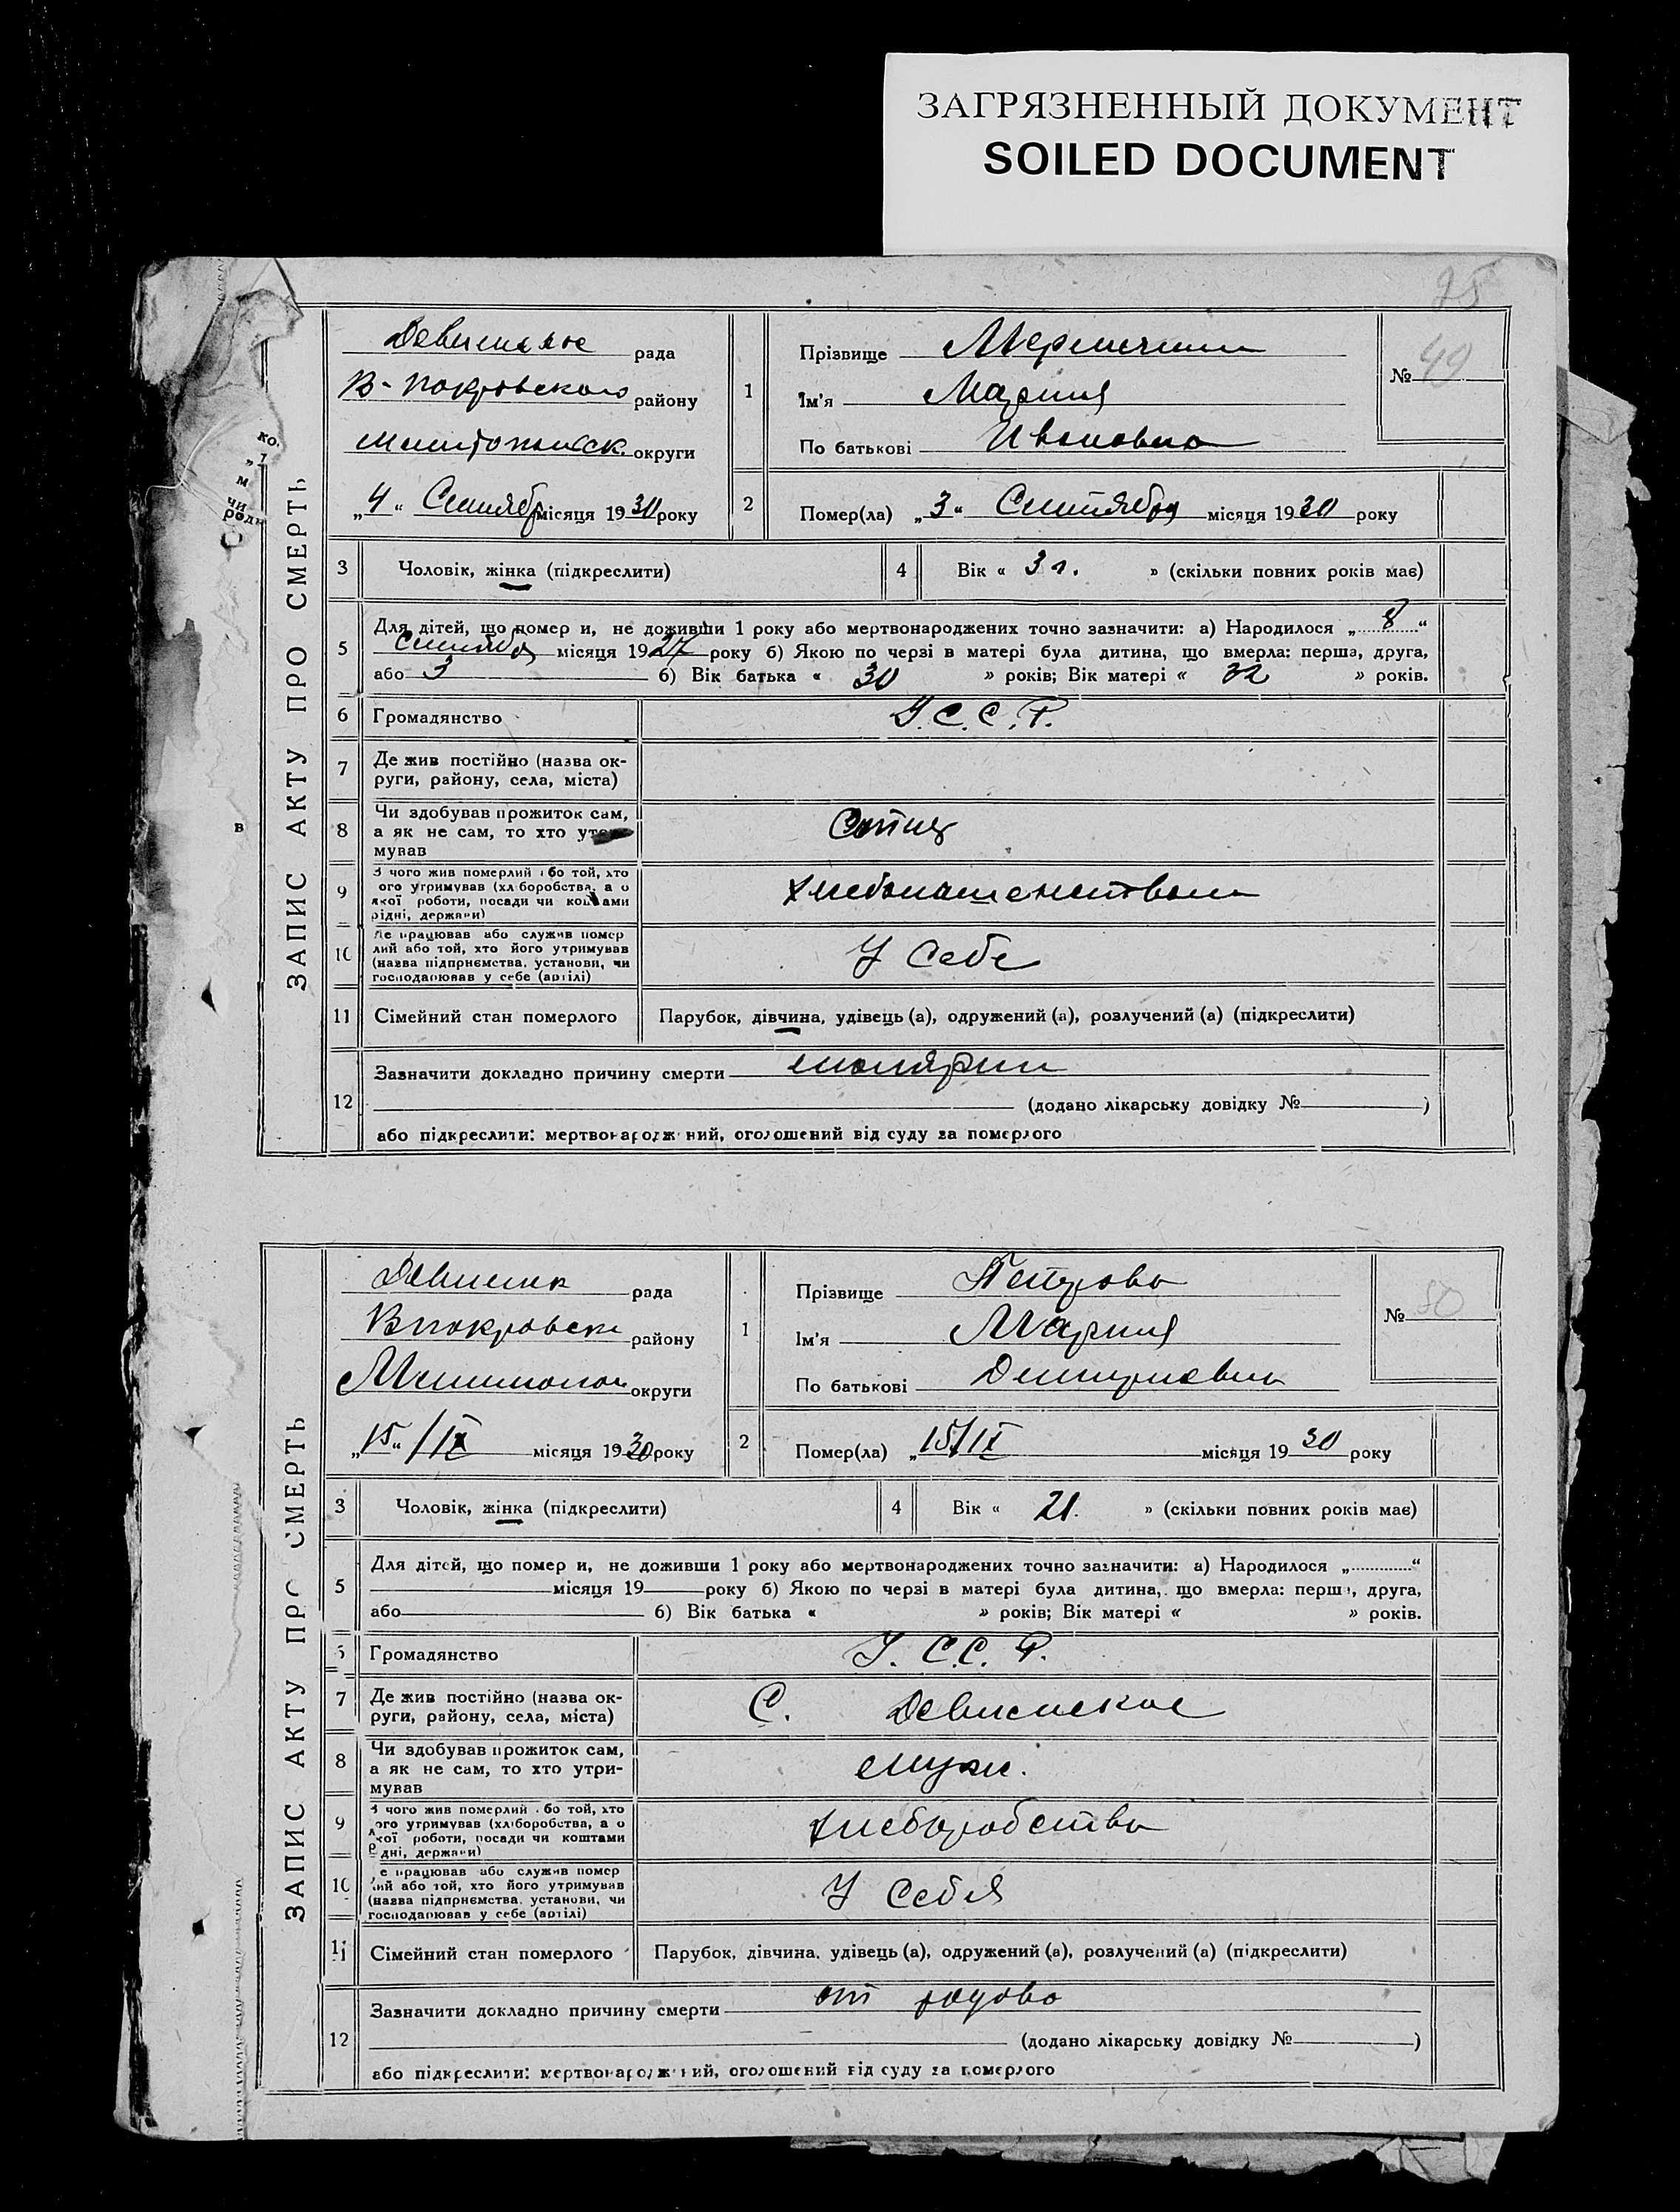 ЗАГРЯЗНЕННЫЙ ДОКУМЕНТ
SOILED DOCUMENT
25
ЗАПИС АКТУ ПРО СМЕРТЬ
рада
В-Покровского району
округи
„4“ Сентября місяця 1930 року
1
Прізвище
Ім'я Мария
По батькові Ивановна
№ 49
2
Помер(ла) „3“ Сентября місяця 1930 року
3 Чоловік, жінка (підкреслити)
4 Вік « 3 г. » (скільки повних років має)
5 Для дітей, що помер и, не доживши 1 року або мертвонароджених точно зазначити: а) Народилося „8“
Сентября місяця 1927 року б) Якою по черзі в матері була дитина, що вмерла: перша, друга,
або 3 б) Вік батька « 30 » років; Вік матері « 32 » років.
6 Громадянство У.С.С.Р.
7 Де жив постійно (назва ок-
руги, району, села, міста)
8 Чи здобував прожиток сам,
а як не сам, то хто утри-
мував
Отец
9 З чого жив померлий або той, хто
його утримував (хліборобства, а о
якої роботи, посади чи коштами
рідні, держави)
10 Де працював або служив помер
лий або той, хто його утримував
(назва підприємства, установи, чи
господарював у себе (артілі)
У себе
11 Сімейний стан померлого Парубок, дівчина, удівець (а), одружений (а), розлучений (а) (підкреслити)
12 Зазначити докладно причину смерти малярии
(додано лікарську довідку № )
або підкреслити: мертвонароджений, оголошений від суду за померлого
ЗАПИС АКТУ ПРО СМЕРТЬ
рада
Впокровск району
округи
„15“/IX місяця 1930 року
1
Прізвище Петрова
Ім'я Мария
По батькові Дмитриевна
№ 50
2
Помер(ла) „15/IX місяця 1930 року
3 Чоловік, жінка (підкреслити)
4 Вік « 21. » (скільки повних років має)
5 Для дітей, що помер и, не доживши 1 року або мертвонароджених точно зазначити: а) Народилося „ “
місяця 19 року б) Якою по черзі в матері була дитина, що вмерла: перша, друга,
або б) Вік батька « » років; Вік матері « » років.
6 Громадянство У.С.С.Р.
7 Де жив постійно (назва ок-
руги, району, села, міста)
С.
8 Чи здобував прожиток сам,
а як не сам, то хто утри-
мував
муж.
9 З чого жив померлий або той, хто
його утримував (хліборобства, а о
якої роботи, посади чи коштами
рідні, держави)
хлеборобство
10 Де працював або служив помер
лий або той, хто його утримував
(назва підприємства, установи, чи
господарював у себе (артілі)
У себя
11 Сімейний стан померлого Парубок, дівчина, удівець (а), одружений (а), розлучений (а) (підкреслити)
12 Зазначити докладно причину смерти от родов
(додано лікарську довідку № )
або підкреслити: мертвонароджений, оголошений від суду за померлого